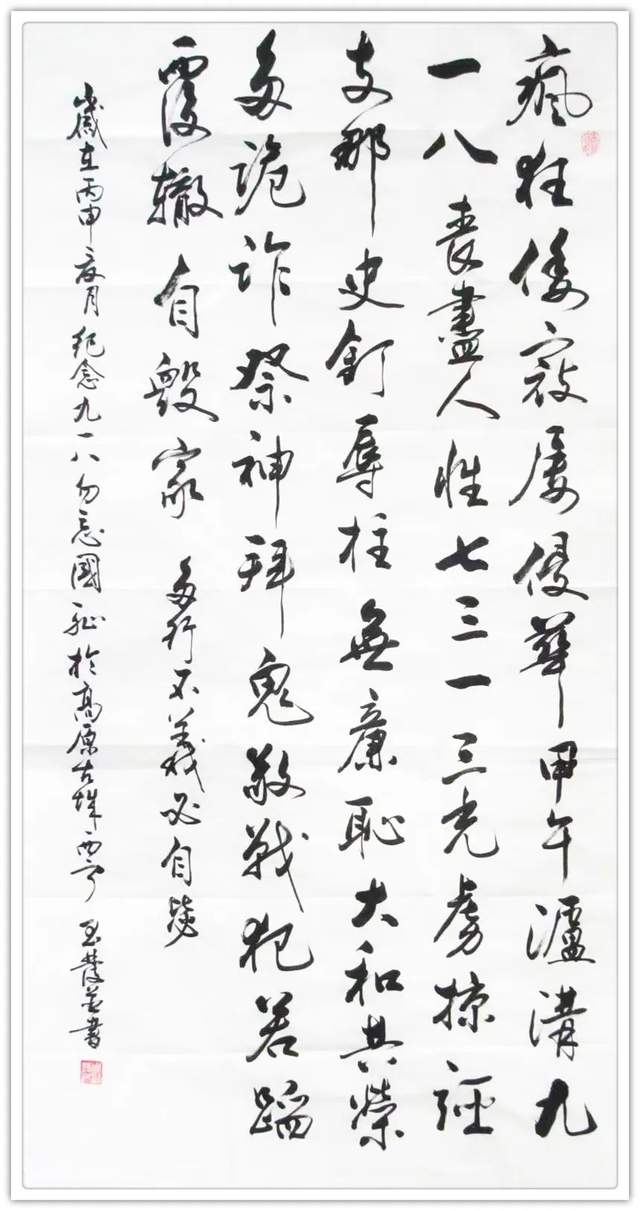 瘋狂倭寇屡侵華甲午瀘溝九
一八喪盡人性七三一三光虏掠誣
支那史釘辱柱無廉恥大和共榮
多詭詐祭神拜鬼敬戰犯若蹈
覆轍自毀家 多行不義必自毙
歲在丙申夏月纪念九一八勿忘國耻於高原古城西宁 書